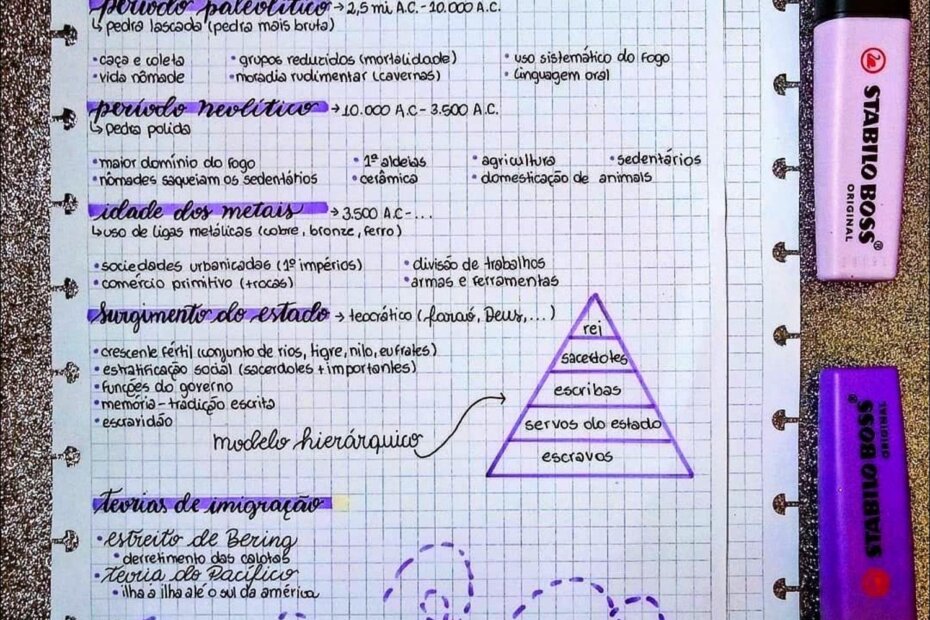 período paleolítico → 2,5 mi A.C. - 10.000 A.C.
↳ pedra lascada (pedra mais bruta)
• caça e coleta • grupos reduzidos (mortalidade) • uso sistemático do fogo
• vida nômade • moradia rudimentar (cavernas) • linguagem oral
período neolítico → 10.000 A.C - 3.500 A.C.
↳ pedra polida
• maior domínio do fogo • 1ª aldeias • agricultura • sedentários
• nômades saqueiam os sedentários • cerâmica • domesticação de animais
idade dos metais → 3.500 A.C - ...
↳ uso de ligas metálicas (cobre, bronze, ferro)
• sociedades urbanicadas (1º impérios) • divisão de trabalhos
• comércio primitivo (trocas) • armas e ferramentas
surgimento do estado → teocrático (faraó, Deus, ...)
• crescente fértil (conjunto de rios, tigre, nilo, eufrates)
• estratificação social (sacerdotes + importantes)
• funções do governo
• memória - tradição escrita
• escravidão
modelo hierárquico
rei
sacerdotes
escribas
servos do estado
escravos
teorias de imigração
• estreito de Bering
• derretimento das calotas
• teoria do Pacífico
• ilha à ilha até o sul da américa
STABILO BOSS®
ORIGINAL
STABILO BOSS®
ORIGINAL